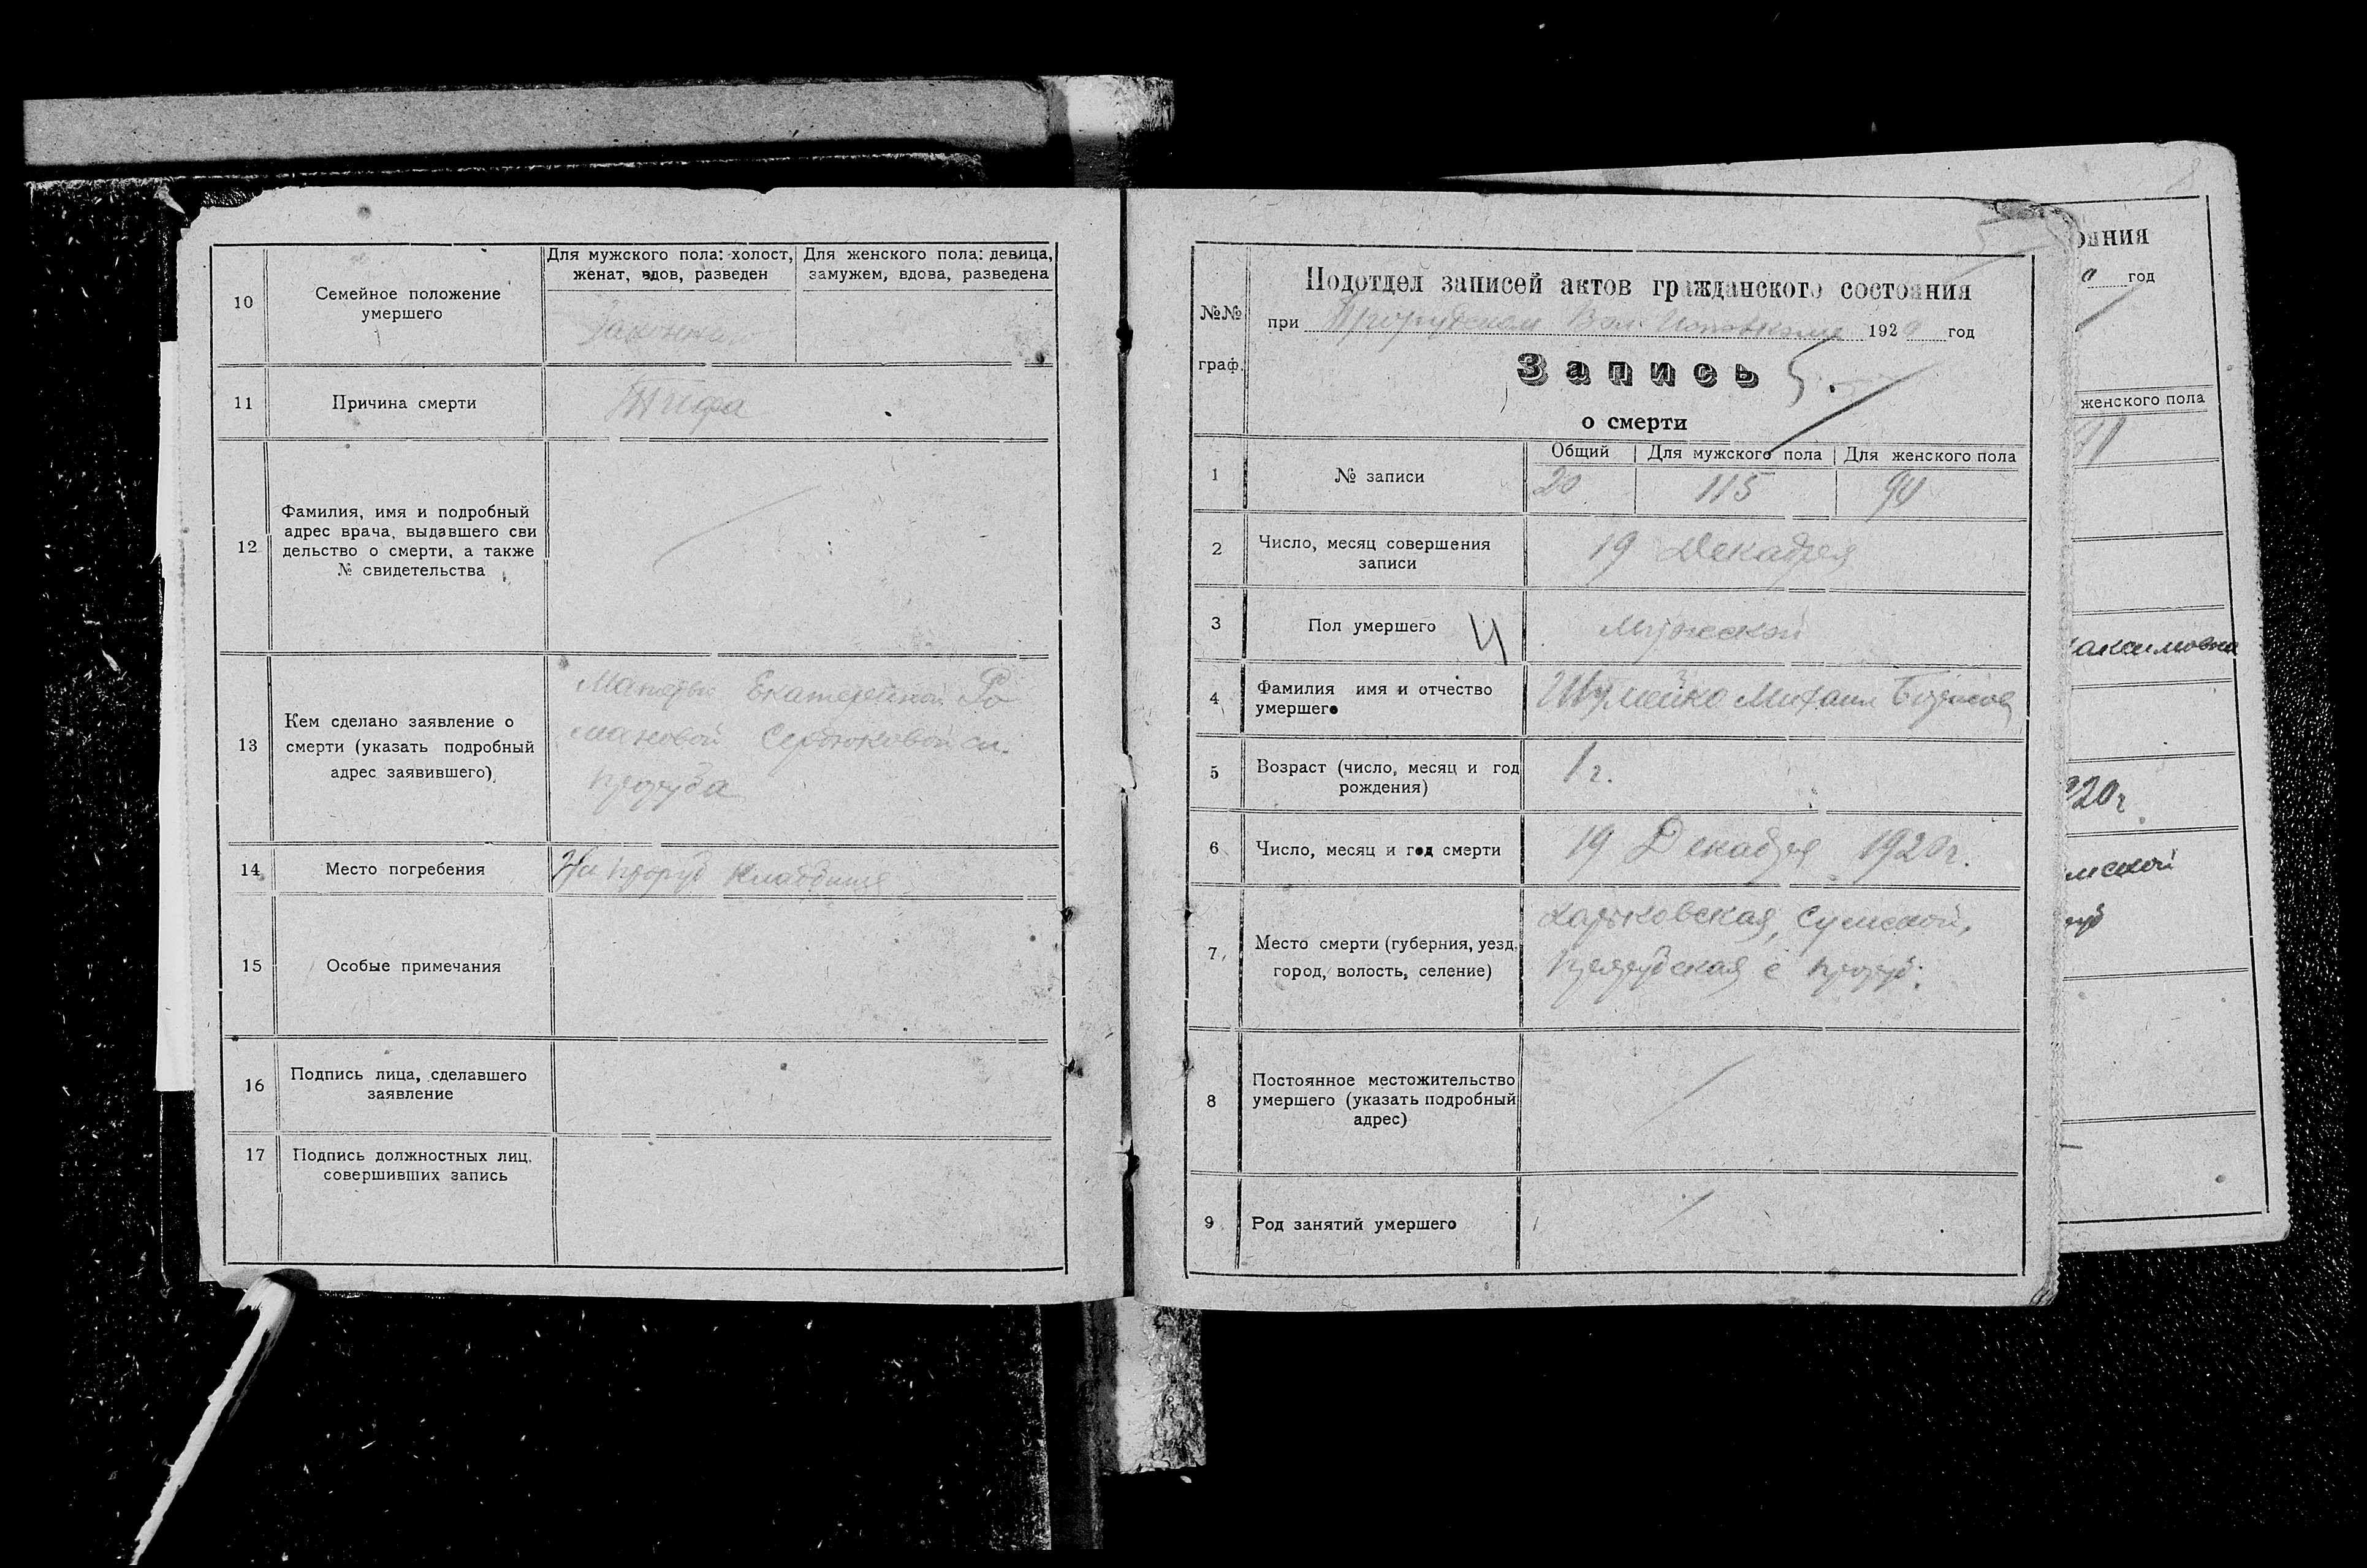 10
Семейное положение
умершего
Для мужского пола: холост,
женат, вдов, разведен
Для женского пола: девица,
замужем, вдова, разведена
11
Причина смерти
Тифа
12
Фамилия, имя и подробный
адрес врача, выдавшего сви
дельство о смерти, а также
№ свидетельства
13
Кем сделано заявление о
смерти (указать подробный
адрес заявившего)
Екатериной Ро
мановой Сердюковой
14
Место погребения
На проруб кладбище
15
Особые примечания
16
Подпись лица, сделавшего
заявление
17
Подпись должностных лиц,
совершивших запись
№№
граф.
Подотдел записей актов гражданского состояния
при Вол. Исполкоме 1920 год
Запись 5.
о смерти
1
№ записи
Общий
Для мужского пола
Для женского пола
20
115
94
2
Число, месяц совершения
записи
19 Декабря
3
Пол умершего
Мужской
4
Фамилия имя и отчество
умершего
Шумейко Михаил Борисов
5
Возраст (число, месяц и год
рождения)
1 г.
6
Число, месяц и год смерти
19 Декабря 1920 г.
7
Место смерти (губерния, уезд,
город, волость, селение)
Харьковская, Сумской,
с проруб.
8
Постоянное местожительство
умершего (указать подробный
адрес)
9
Род занятий умершего
8
ояния
год
женского пола
91
аксимовна
920г